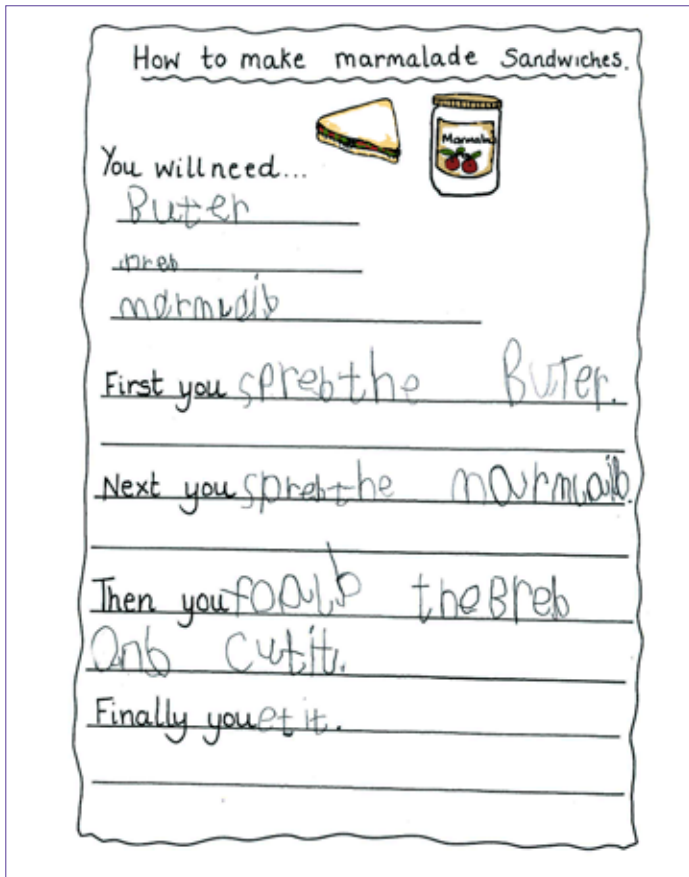 How to make marmalade Sandwiches.
Marmala
You will need...
Buter
breb
marmlaib
First you spreb the Buter.
Next you spreb the marmlaib.
Then you foalb the Breb
Anb cut it.
Finally you et it.